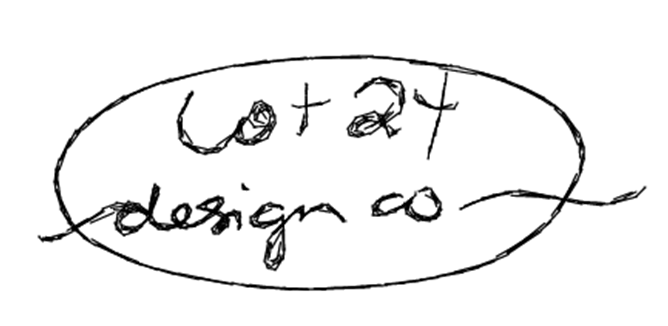 Lot 24
design co